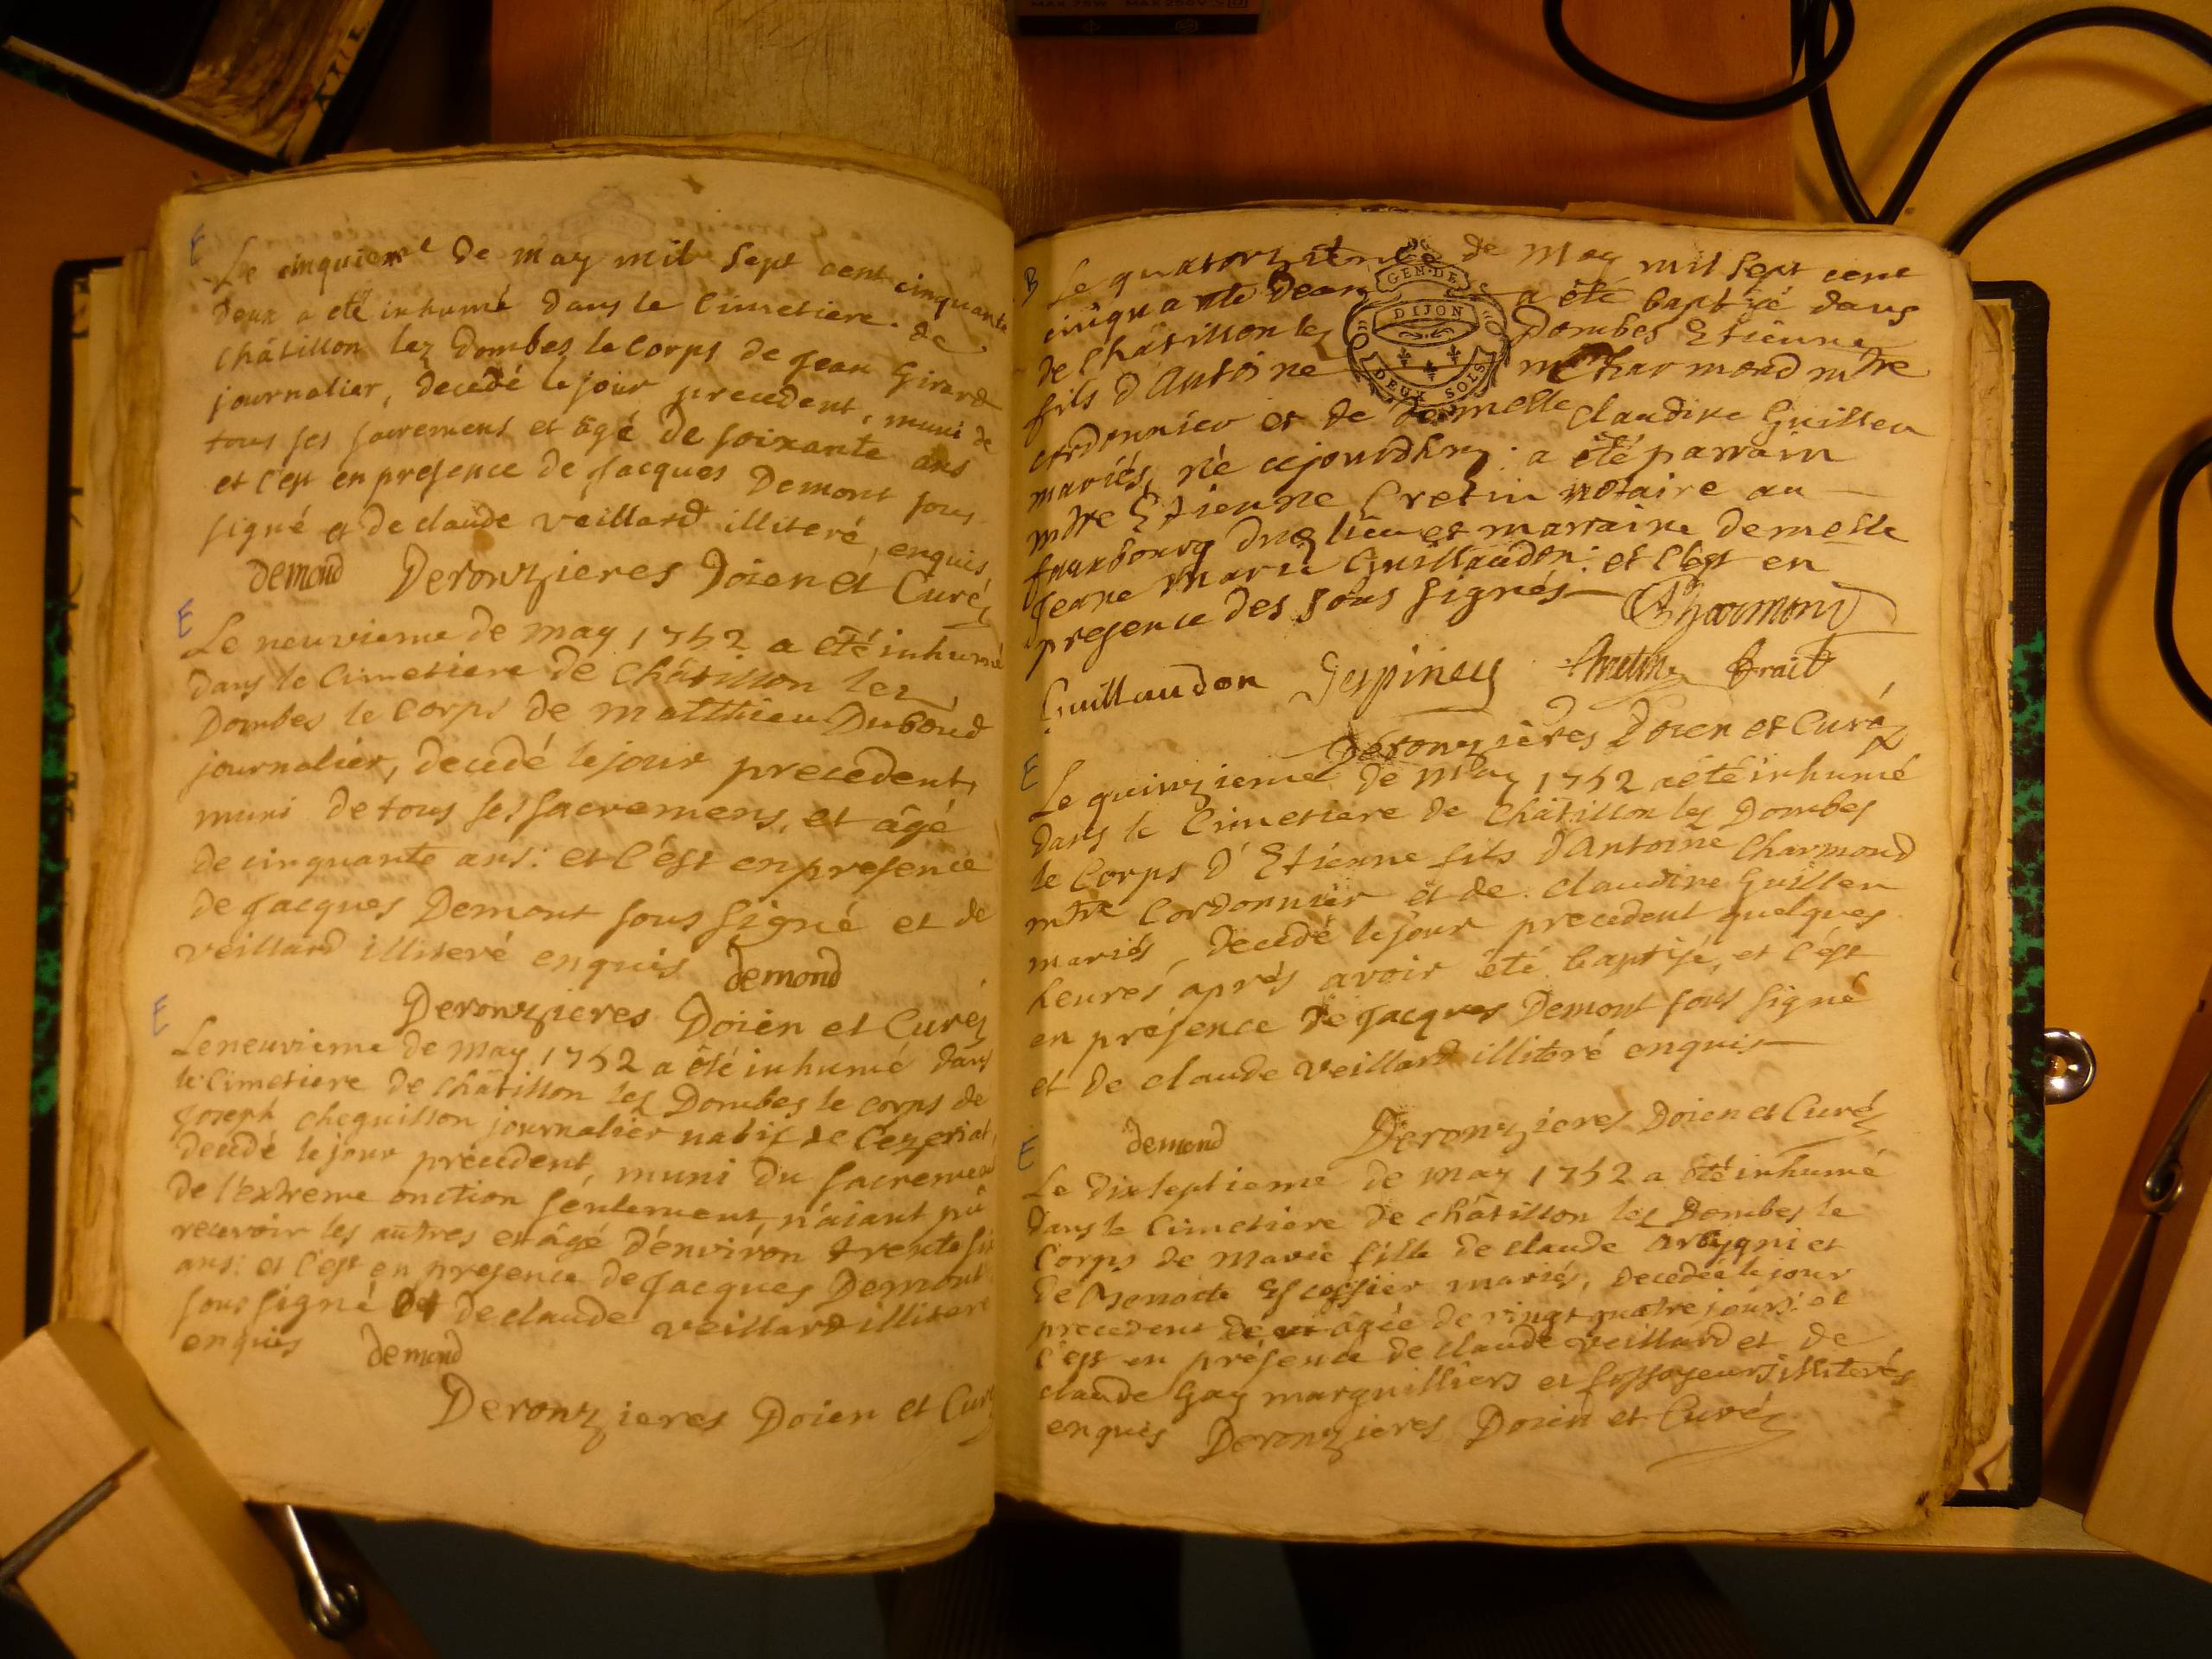 MAX 75W MAX 250V
E
Le cinquieme de may mil sept cent cinquante
deux a eté inhumé dans le Cimetiere de
Châtillon lez Dombes le corps de Jean Girard
journalier, decedé le jour precedent, muni de
tous ses sacremens et âgé de soixante ans
et c'est en presence de Jacques Demont sous
signé et de claude veillard illiteré, enquis
demond Deronzieres Doien et Curé
E
Le neuvieme de may 1752 a eté inhumé
dans le Cimetiere de Châtillon lez
Dombes le corps de matthieu Duboud
journalier, decedé le jour precedent,
muni de tous ses sacremens, et âgé
de cinquante ans: et c'est en presence
de Jacques Demont sous signé et de
veillard illiteré enquis demond
Deronzieres Doien et Curé
E
Le neuvieme de may 1752 a eté inhumé dans
le Cimetiere de Châtillon lez Dombes le corps de
Joseph cheguillon journalier natif de Cezeriat,
decedé le jour précedent, muni du sacrement
de l'extreme onction seulement, n'aiant pû
recevoir les autres et âgé d'environ trente six
ans: et c'est en presence de Jacques Demont
sous signé et de claude veillard illiteré
enquis demond
Deronzieres Doien et Curé
B
Le quatorzieme de may mil sept cent
cinquante deux a eté baptisé dans
de Châtillon lez Dombes Etienne
fils d'Antoine Charmond mtre
cordonnier et de demelle Claudine Guiller
mariés, né cejourdhuy: a été parrain
mtre Etienne Cretin notaire au
fauxbourg dud lieu et marraine demelle
Jeane Marie Guillaudon: et c'est en
presence des sous signés Charmond
Guillaudon
Deronzières Doien et Curé
GEN·DE
DIJON
DEUX SOLS
E
Le quinzieme de may 1752 a été inhumé
dans le Cimetiere de Châtillon lez Dombes
le corps d'Etienne fils d'Antoine Charmond
mtre Cordonnier et de claudine Guiller
mariés, decedé le jour precedent quelques
heures après avoir été baptisé, et c'est
en présence de Jacques Demont sous signé
et de claude veillard illiteré enquis
demond Deronzieres Doien et Curé
E
Le dixseptieme de may 1752 a été inhumé
dans le Cimetiere de châtillon lez Dombes le
Corps de Marie fille de claude Arbygni et
de mariés, decedée le jour
precedent âgée de vingt quatre jours: et
c'est en présence de claude veillard et de
claude Gay marguilliers et fossoyeurs illiterés
enquis Deronzieres Doien et Curé